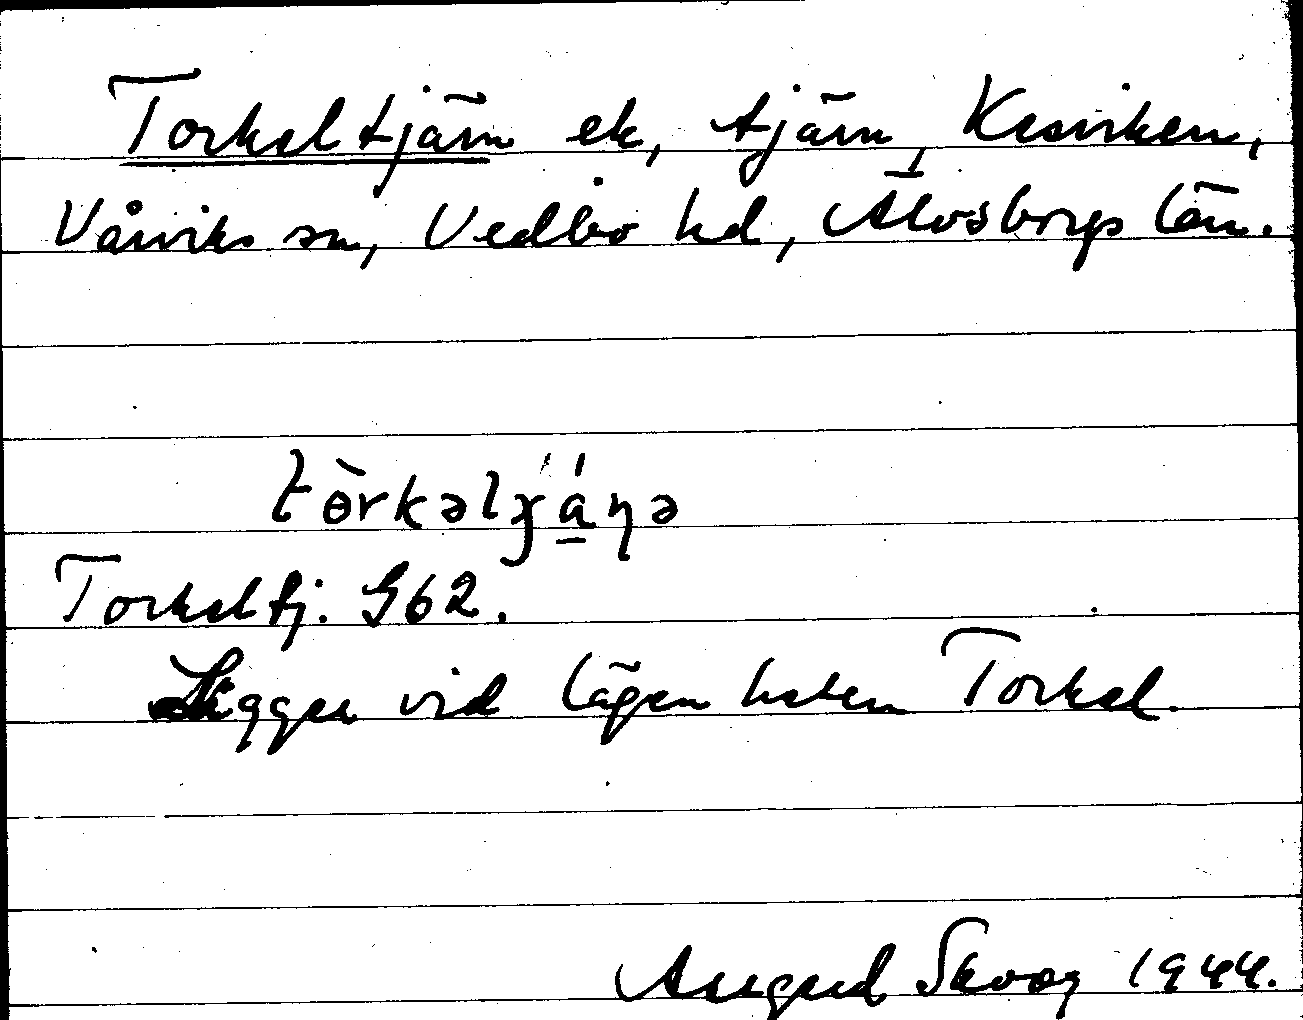 Torkeltjärn ek, tjärn, Kesviken,
Vårviks sn, Vedbo hd, Älvsborgs län.
tɵ̀rkəlɟá̱ɳə
Torkeltj. G62.
Ligger vid lägenheten Torkel.
August Skoog 1944.